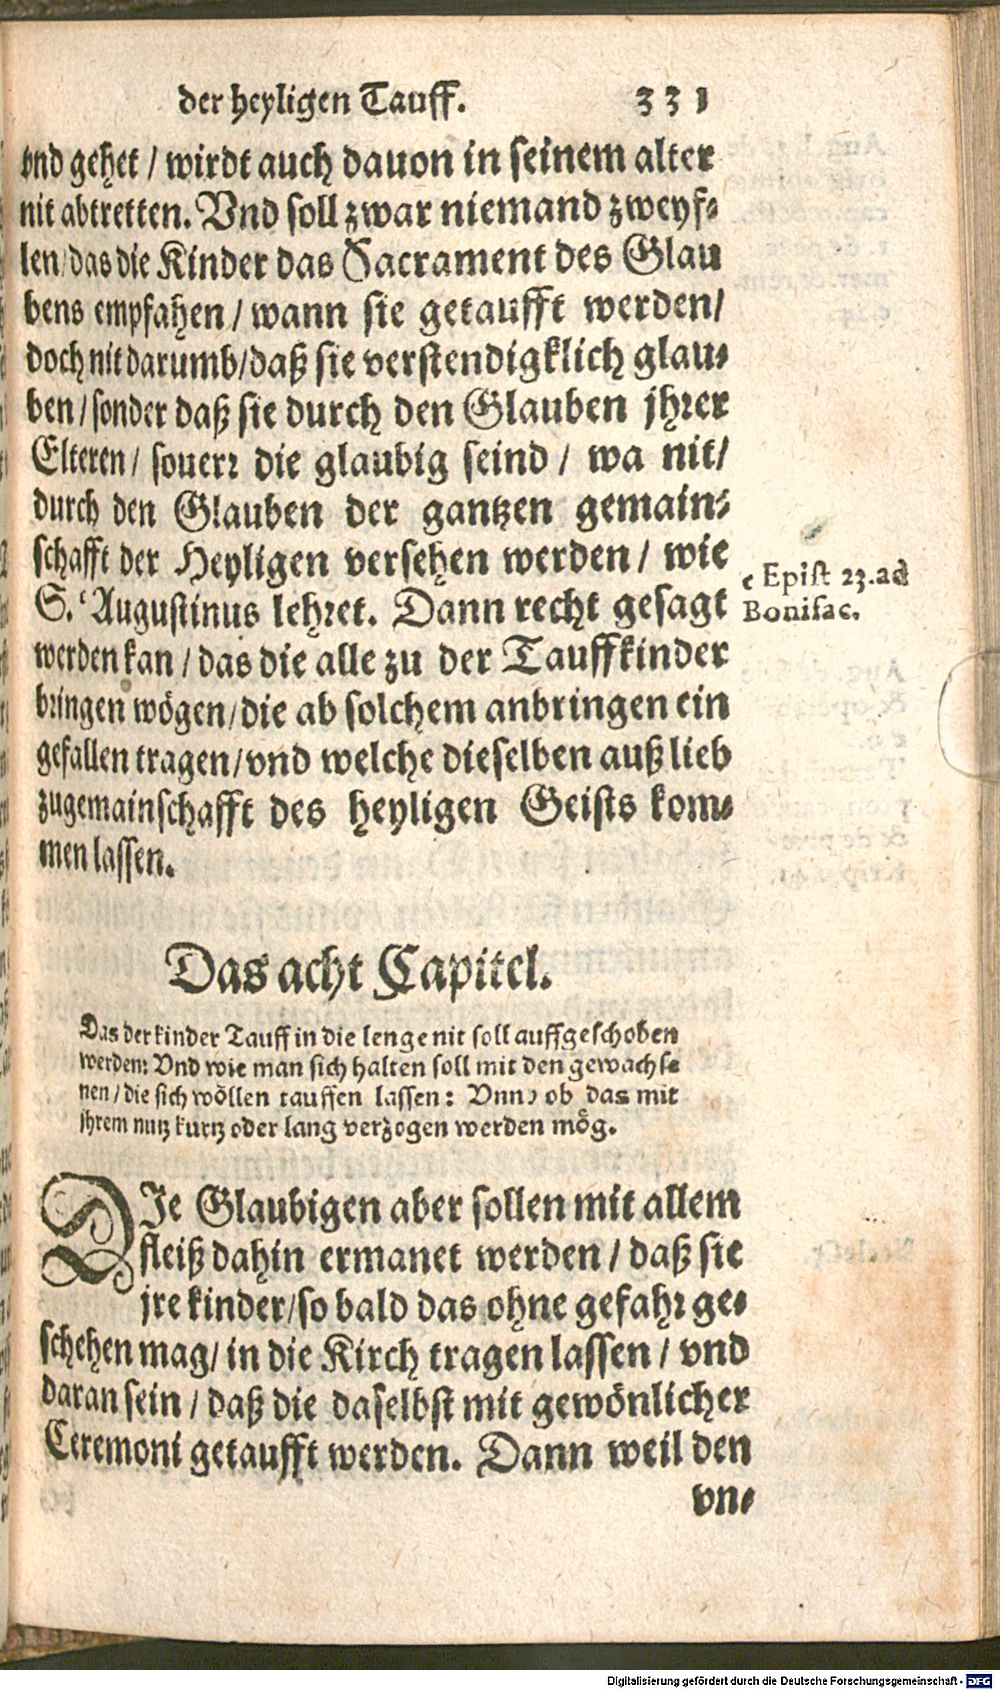 der heyligen Tauff. 331
vnd gehet / wirdt auch dauon in seinem alter
nit abtretten. Vnd soll zwar niemand zweyf⸗
len / das die Kinder das Sacrament des Glau
bens empfahen / wann sie getaufft werden /
doch nit darumb / daß sie verstendigklich glau⸗
ben / sonder daß sie durch den Glauben jhrer
Elteren / souerr die glaubig seind / wa nit /
durch den Glauben der gantzen gemain⸗
schafft der Heyligen versehen werden / wie
S. ᶜAugustinus lehret. Dann recht gesagt
werden kan / das die alle zu der Tauff kinder
bringen mögen / die ab solchem anbringen ein
gefallen tragen / vnd welche dieselben auß lieb
zugemainschafft des heyligen Geists kom⸗
men lassen.
c Epist 23. ad
Bonifac.
Das acht Capitel.
Das der kinder Tauff in die lenge nit soll auffgeschoben
werden: Vnd wie man sich halten soll mit den gewachse
nen / die sich wöllen tauffen lassen: Vnnd ob das mit
jhrem nutz kurtz oder lang verzogen werden mög.
DIe Glaubigen aber sollen mit allem
fleiß dahin ermanet werden / daß sie
jre kinder / so bald das ohne gefahr ge⸗
schehen mag / in die Kirch tragen lassen / vnd
daran sein / daß die daselbst mit gewönlicher
Ceremoni getaufft werden. Dann weil den
vn⸗
Digitalisierung gefördert durch die Deutsche Forschungsgemeinschaft - DFG